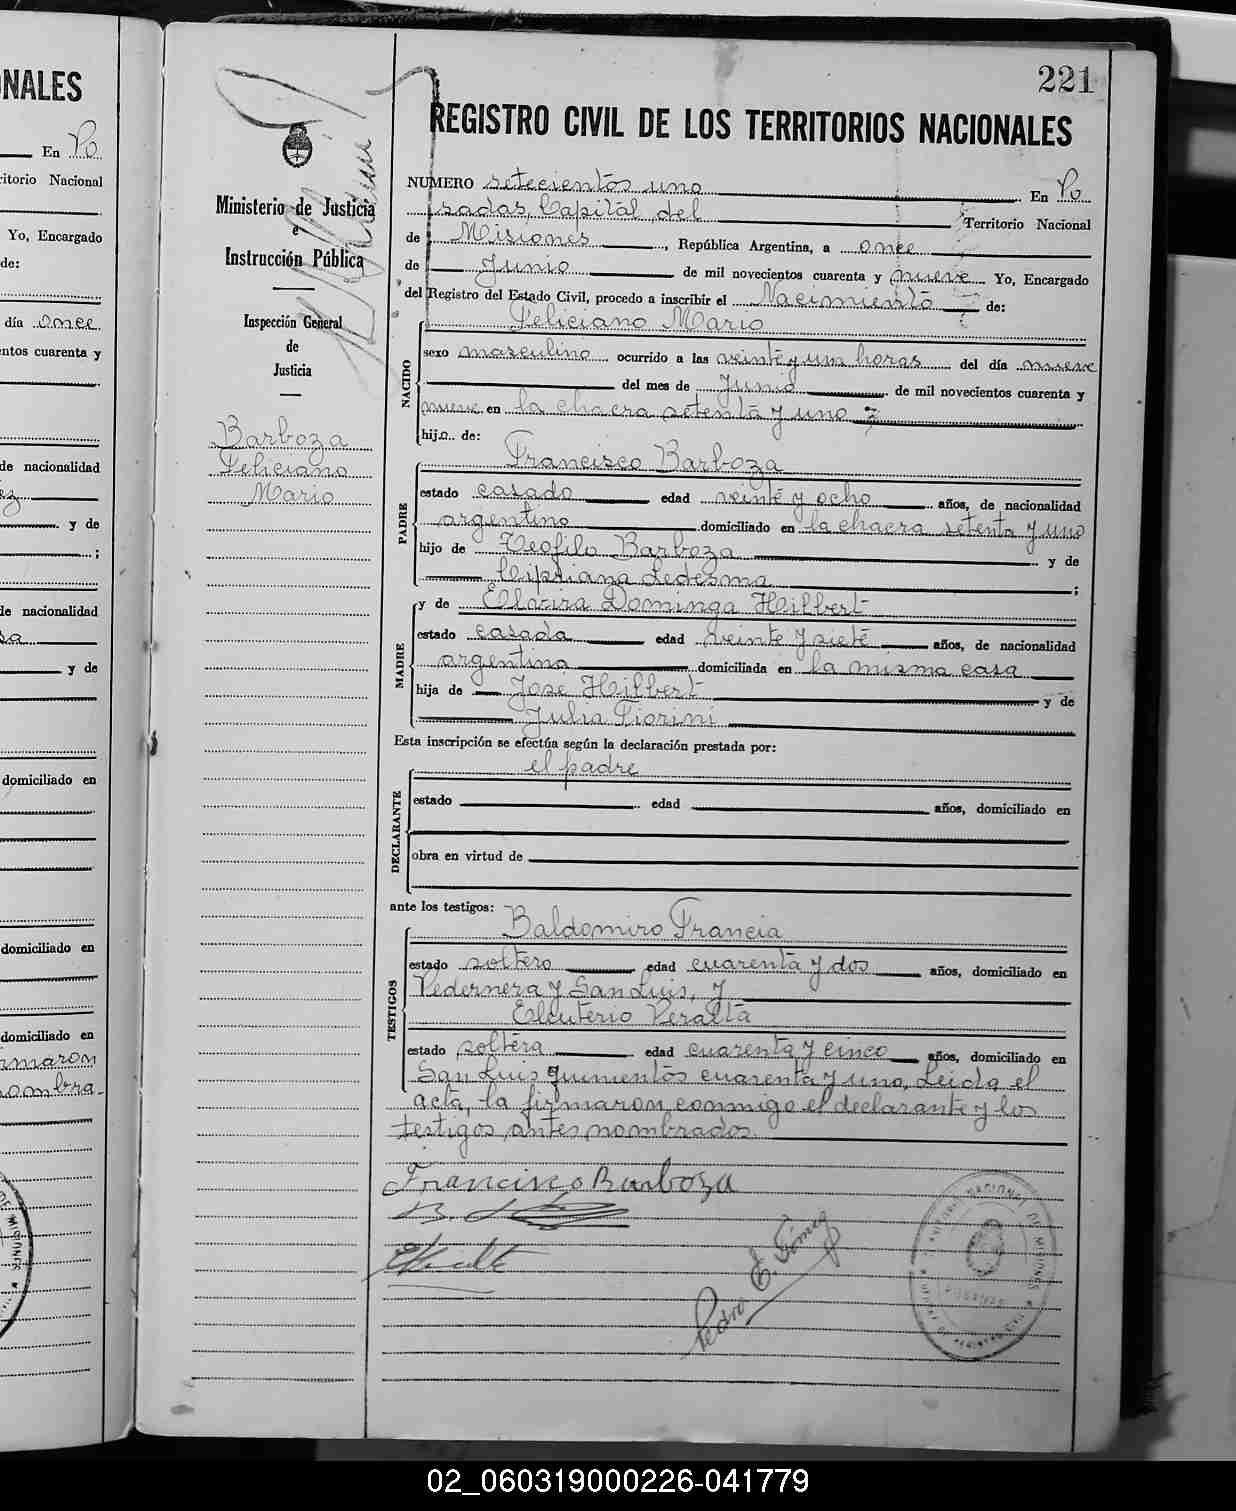 ONALES
En Po
ritorio Nacional
Yo, Encargado
de:
día once
ntos cuarenta y
de nacionalidad
ez
y de
;
de nacionalidad
sa
y de
domiciliado en
domiciliado en
domiciliado en
rmaron
nombra-
221
REGISTRO CIVIL DE LOS TERRITORIOS NACIONALES
Ministerio de Justicia
e
Instrucción Pública
Inspección General
de
Justicia
Barboza
Feliciano
Mario
NUMERO setecientos uno En Po
sadas, Capital del Territorio Nacional
de Misiones, República Argentina, a once
de Junio de mil novecientos cuarenta y nueve Yo, Encargado
del Registro del Estado Civil, procedo a inscribir el Nacimiento de:
NACIDO
Feliciano Mario
sexo masculino ocurrido a las veinte y un horas del día nueve
del mes de Junio de mil novecientos cuarenta y
nueve en la chacra setenta y uno
hijo de:
PADRE
Francisco Barboza
estado casado edad veinte y ocho años, de nacionalidad
argentino domiciliado en la chacra setenta y uno
hijo de Teofilo Barboza y de
Cipriana Ledesma ;
MADRE
y de Elvira Dominga Hilbert
estado casada edad veinte y siete años, de nacionalidad
argentina domiciliada en la misma casa
hija de José Hilbert y de
Julia Fiorini
Esta inscripción se efectúa según la declaración prestada por:
DECLARANTE
el padre
estado edad años, domiciliado en
obra en virtud de
ante los testigos:
TESTIGOS
Baldomiro Francia
estado soltero edad cuarenta y dos años, domiciliado en
Pedernera y San Luis, y
Eleuterio Peralta
estado soltera edad cuarenta y cinco años, domiciliado en
San Luis quinientos cuarenta y uno. Leida el
acta, la firmaron conmigo el declarante y los
testigos antes nombrados.
Francisco Barboza
Pedro E. Gómez
02_060319000226-041779